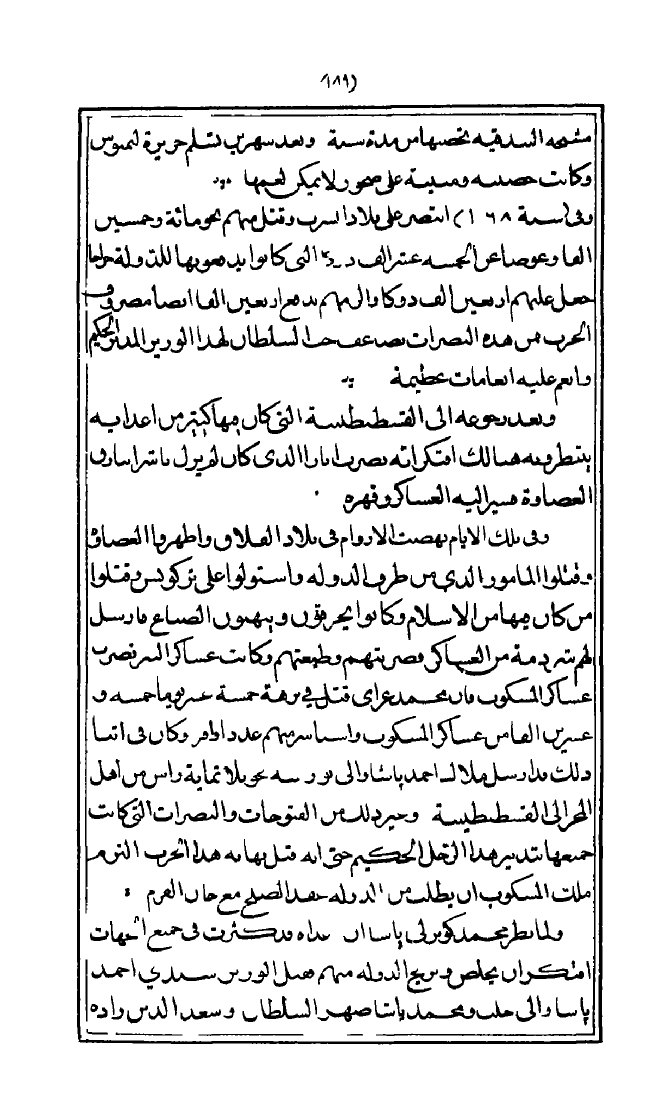 (١٨٩)
مشيخه البندقيه بخصها من مدة سنة وبعد شهرين تسلم جزيرة ليمنوس
وكانت حصينه ومبنية على صخور لا يمكن لغمها
وفى سنة ١٠٦٨ انتصر على بلاد وقتل منهم نحو مائة وخمسين
الفا وعوضا عن الخمسه عشر الف التى كانوا يدفعوها للدولة خراجا
جعل عليهم اربعين الف دوكا والزمهم بدفع اربعين الفا ايضا مصروف
الحرب فمن هذه النصرات تضاعف حب السلطان لهذا الوزير المدبر الحكيم
وانعم عليه انعامات عظيمة
وبعد رجوعه الى القسطنطينية التى كان بها كثير من اعدايه
ينتظرونه هنالك افتكر انه يضرب الذى كان لم يزل ناشرا بيارق
العصاوة فسير اليه العساكر وقهره
وفى تلك الايام نهضت الاروام فى بلاد الفلاق واظهروا العصاوة
وقتلوا المامور الذى من طرف الدوله واستولوا على وقتلوا
من كان بها من الاسلام وكانوا يحرقون وينهبون الضياع فارسل
لهم شرذمة من العساكر فضربتهم وطيعتهم وكانت عساكر التتر تضرب
عساكر المسكوب فان محمد غراى قتل فى برهة خمسة عشر يوما خمسه و
عشرين الفا من عساكر المسكوب واستاسر منهم عددا وافر وكان فى اثنا
ذلك قد ارسل احمد پاشا والى نحو ثلاثماية راس من اهل
المجر الى القسطنطينية وغير ذلك من الفتوحات والنصرات التى كانت
جميعها بتدبير هذا الرجل الحكيم حتى انه قبل نهاية هذا الحرب التزم
ملك المسكوب ان يطلب من الدوله عقد الصلح مع خان القرم
ولما نظر محمد كوبرلى پاشا ان عداه قد كثرت فى جميع الجهات
افتكر ان يخلص ويريح الدوله منهم فقتل الوزير سيدي احمد
پاشا والى حلب ومحمد پاشا صهر السلطان وسعد الدين زاده